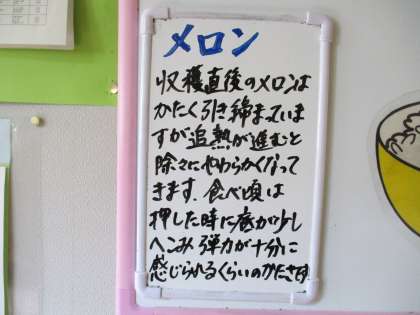 メロン
収穫直後のメロンは
かたく引き締まっていま
すが追熟が進むと
除々にやわらかくなって
きます。食べ頃は
押した時に底が少し
へこみ弾力が十分に
感じられるくらいのかたさです